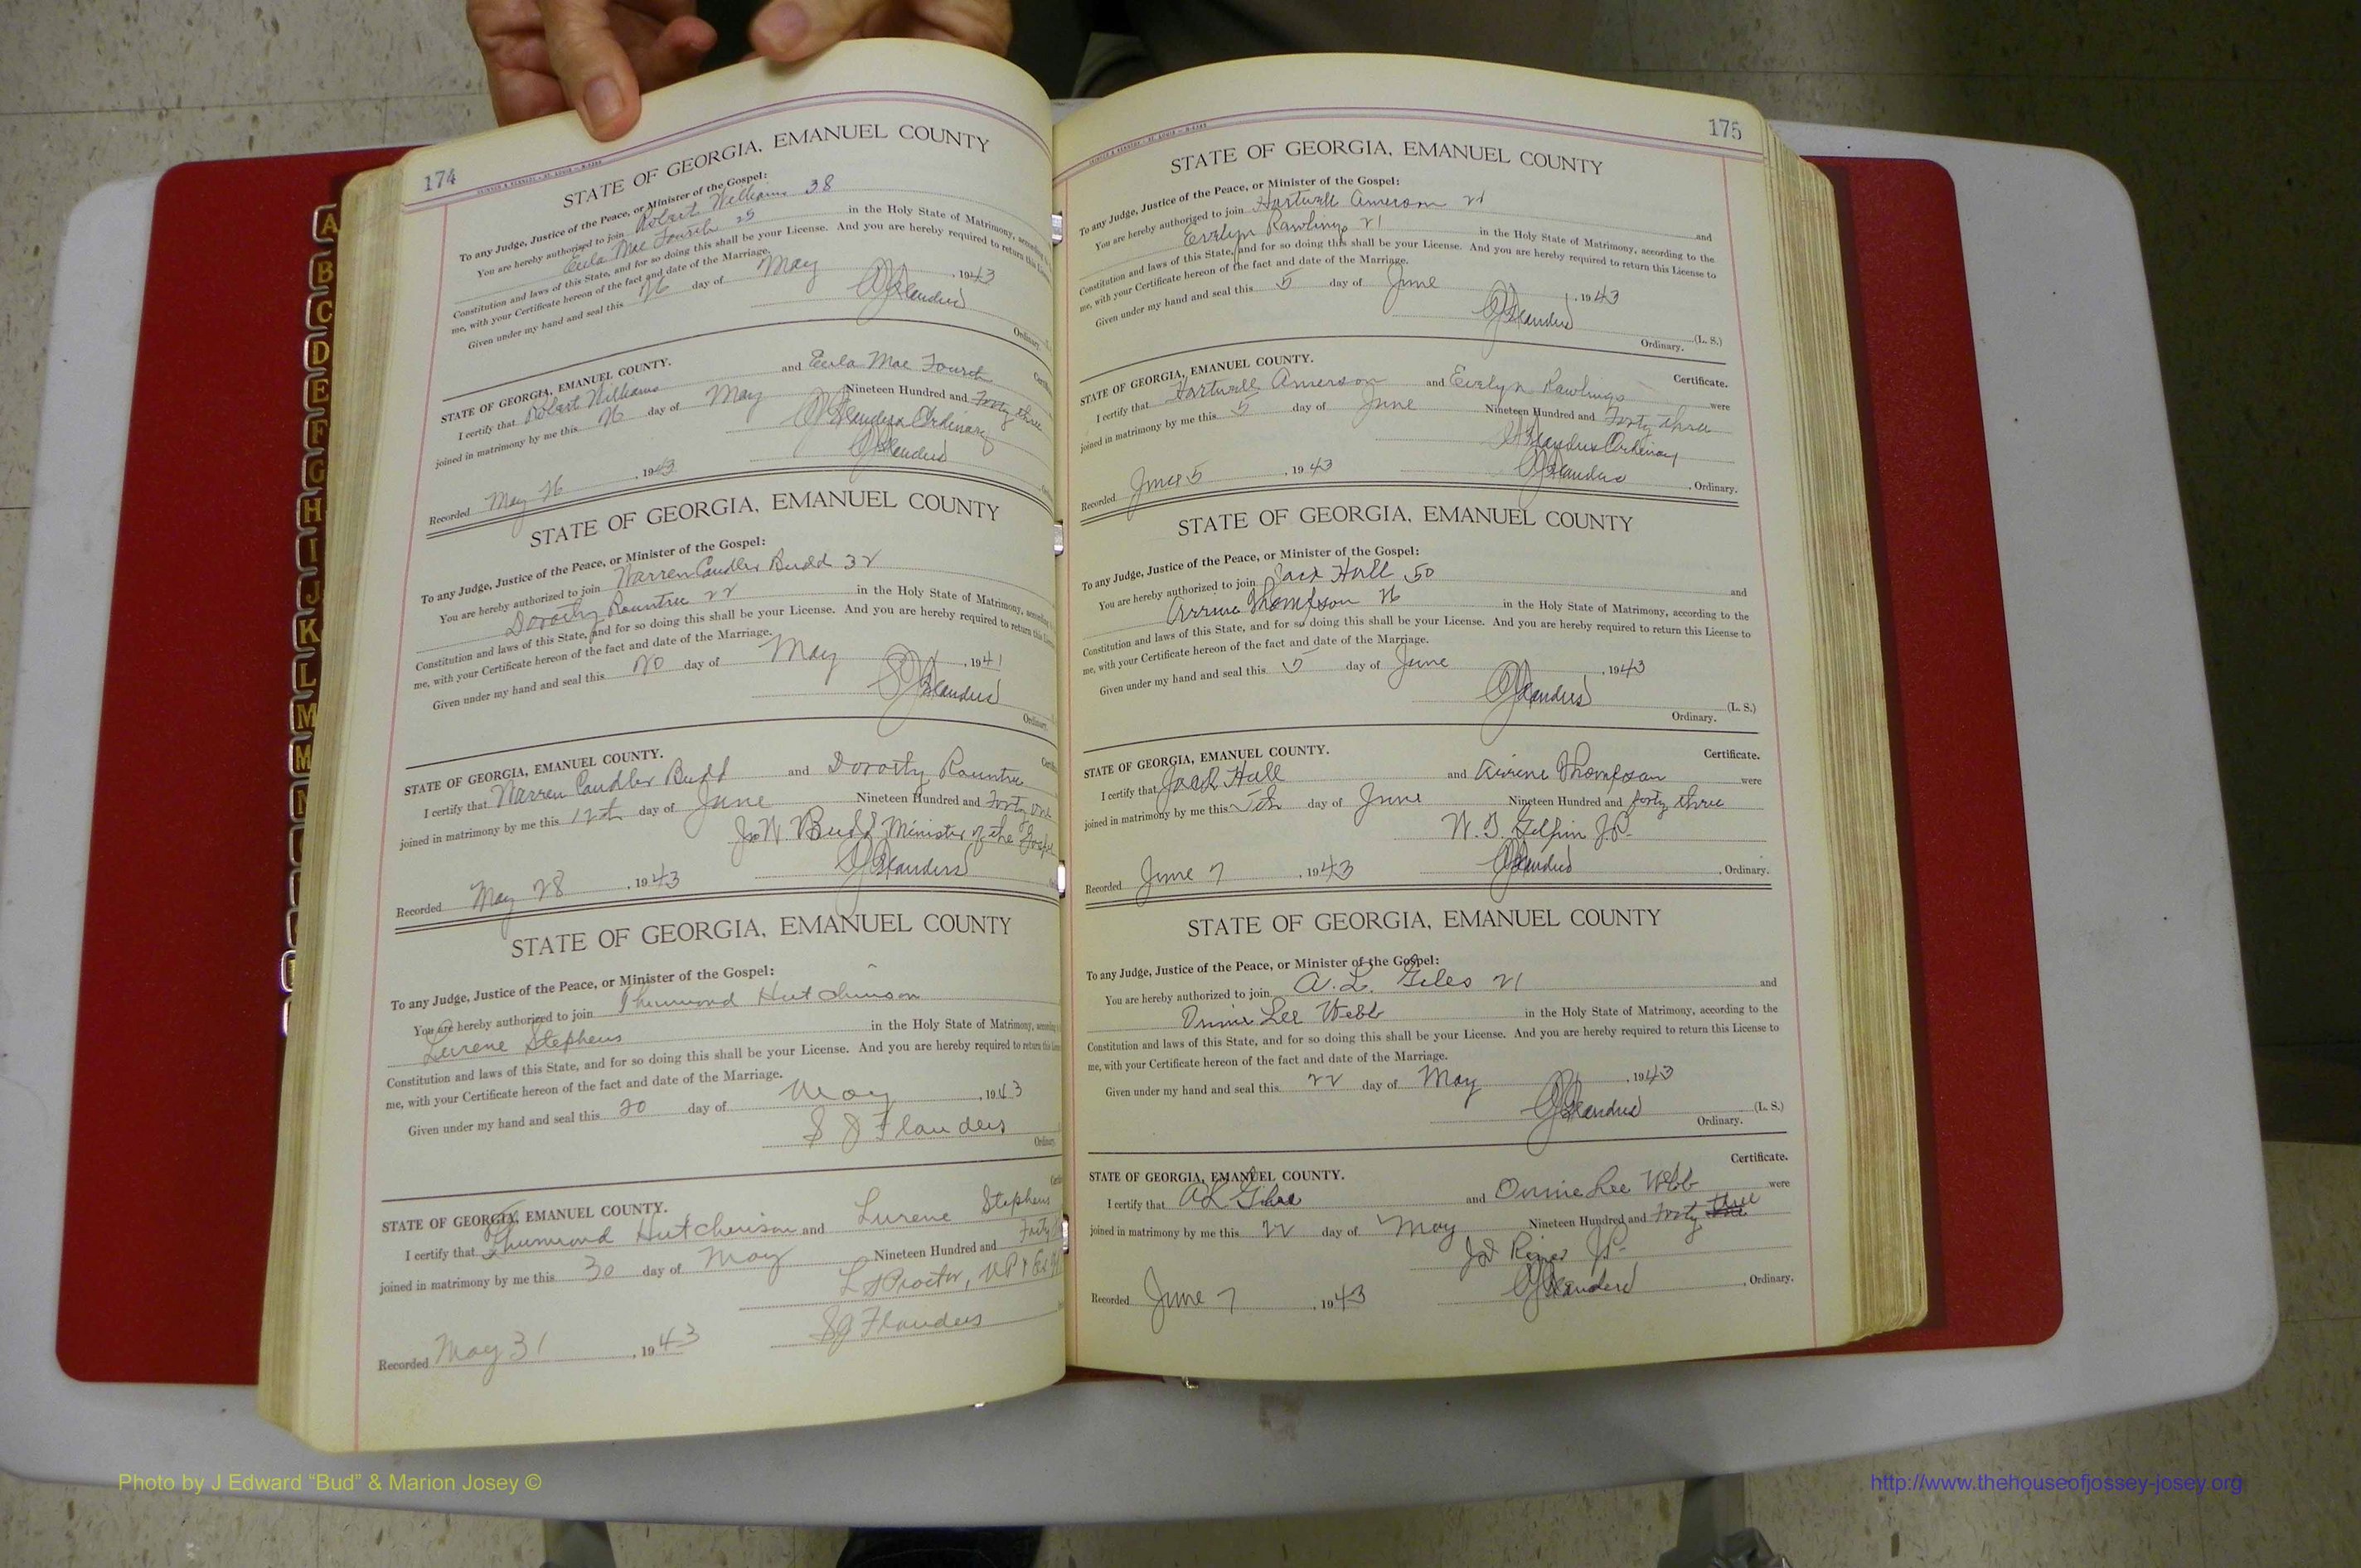 174
STATE OF GEORGIA, EMANUEL COUNTY
To any Judge, Justice of the Peace, or Minister of the Gospel:
You are hereby authorized to join Robert Williams 38
Eula Mae Fourth 25 in the Holy State of Matrimony,
Constitution and laws of this State, and for so doing this shall be your License. And you are hereby required to return this
me, with your Certificate hereon of the fact and date of the Marriage.
Given under my hand and seal this 26 day of May , 1943
Flanders
Ordinary.
STATE OF GEORGIA, EMANUEL COUNTY.
I certify that Robert Williams and Eula Mae Fourth
joined in matrimony by me this 26 day of May Nineteen Hundred and Forty three
Flanders Ordinary
Recorded May 26 , 1943 Flanders
STATE OF GEORGIA, EMANUEL COUNTY
To any Judge, Justice of the Peace, or Minister of the Gospel:
You are hereby authorized to join Warren Candler Budd 32
Dorothy Rountree 22 in the Holy State of Matrimony,
Constitution and laws of this State, and for so doing this shall be your License. And you are hereby required to return this
me, with your Certificate hereon of the fact and date of the Marriage.
Given under my hand and seal this 20 day of May , 1941
Flanders
Ordinary.
STATE OF GEORGIA, EMANUEL COUNTY.
I certify that Warren Candler Budd and Dorothy Rountree
joined in matrimony by me this 12th day of June Nineteen Hundred and Forty one
W. Budd Minister of the Gospel
Recorded May 28 , 1943 Flanders
STATE OF GEORGIA, EMANUEL COUNTY
To any Judge, Justice of the Peace, or Minister of the Gospel:
You are hereby authorized to join Thurmond Hutchinson
Lurene Stephens in the Holy State of Matrimony,
Constitution and laws of this State, and for so doing this shall be your License. And you are hereby required to return this
me, with your Certificate hereon of the fact and date of the Marriage.
Given under my hand and seal this 20 day of May , 1943
S J Flanders
Ordinary.
STATE OF GEORGIA, EMANUEL COUNTY.
I certify that Thurmond Hutchinson and Lurene Stephens
joined in matrimony by me this 30 day of May Nineteen Hundred and Forty
Proctor,
Recorded May 31 , 1943 S J Flanders
175
STATE OF GEORGIA, EMANUEL COUNTY
To any Judge, Justice of the Peace, or Minister of the Gospel:
You are hereby authorized to join Hartwell Amerson 21 and
Evelyn Rawlings 21 in the Holy State of Matrimony, according to the
Constitution and laws of this State, and for so doing this shall be your License. And you are hereby required to return this License to
me, with your Certificate hereon of the fact and date of the Marriage.
Given under my hand and seal this 5 day of June , 1943
Flanders (L. S.)
Ordinary.
STATE OF GEORGIA, EMANUEL COUNTY. Certificate.
I certify that Hartwell Amerson and Evelyn Rawlings were
joined in matrimony by me this 5 day of June Nineteen Hundred and Forty three
Flanders Ordinary
Recorded June 5 , 1943 Flanders , Ordinary.
STATE OF GEORGIA, EMANUEL COUNTY
To any Judge, Justice of the Peace, or Minister of the Gospel:
You are hereby authorized to join Jack Hall 50 and
Thompson 26 in the Holy State of Matrimony, according to the
Constitution and laws of this State, and for so doing this shall be your License. And you are hereby required to return this License to
me, with your Certificate hereon of the fact and date of the Marriage.
Given under my hand and seal this 5 day of June , 1943
Flanders (L. S.)
Ordinary.
STATE OF GEORGIA, EMANUEL COUNTY. Certificate.
I certify that Jack Hall and Thompson were
joined in matrimony by me this 5th day of June Nineteen Hundred and forty three
W. J. Gilpin J.P.
Recorded June 7 , 1943 Flanders , Ordinary.
STATE OF GEORGIA, EMANUEL COUNTY
To any Judge, Justice of the Peace, or Minister of the Gospel:
You are hereby authorized to join A. L. Giles 21 and
Onnie Lee Webb in the Holy State of Matrimony, according to the
Constitution and laws of this State, and for so doing this shall be your License. And you are hereby required to return this License to
me, with your Certificate hereon of the fact and date of the Marriage.
Given under my hand and seal this 22 day of May , 1943
Flanders (L. S.)
Ordinary.
STATE OF GEORGIA, EMANUEL COUNTY. Certificate.
I certify that A L Giles and Onnie Lee Webb were
joined in matrimony by me this 22 day of May Nineteen Hundred and Forty three
J.P.
Recorded June 7 , 1943 Flanders , Ordinary.
A
B
C
D
E
F
G
H
I
J
K
L
M
M
N
Photo by J Edward “Bud” & Marion Josey ©
http://www.thehouseofjossey-josey.org